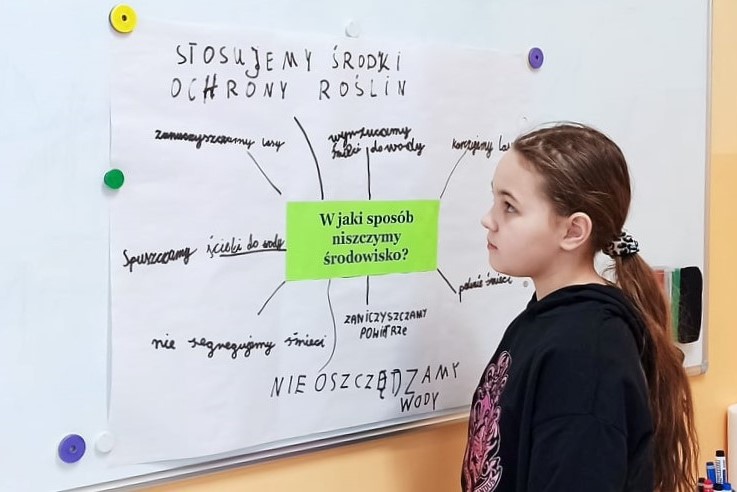 STOSUJEMY ŚRODKI
OCHRONY ROŚLIN
zanieczyszczamy lasy
wyrzucamy
śmieci do wody
karczujemy
Spuszczamy ścieki do wody
W jaki sposób
niszczymy
środowisko?
śmieci
nie segregujemy śmieci
ZANICZYSZCZAMY
POWIETRZE
NIE OSZCZĘDZAMY
WODY